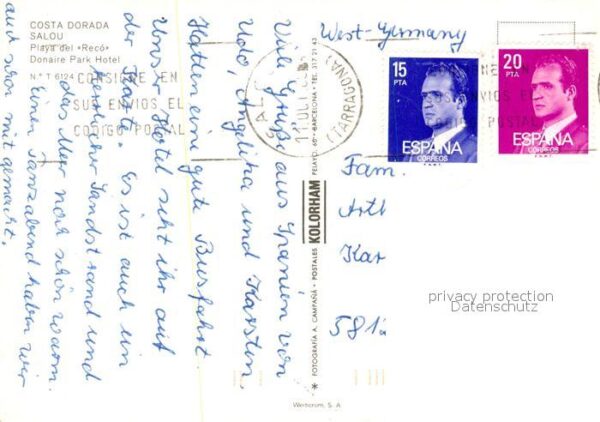 COSTA DORADA
SALOU
Playa del «Recó»
Donaire Park Hotel
N° T 6124
CONSIGNE EN
SUS ENVIOS EL
CODIGO POSTAL
SALOU
(TARRAGONA)
15
PTA
ESPAÑA
CORREOS
20
PTA
ESPAÑA
CORREOS
West-Germany
Viele Grüße aus Spanien von
Udo, Angelina und Karsten.
Hatten ein gute Busfahrt.
Unser Hotel seht ihr auf
der Karte. Es ist auch ein
Sandstrand und
das Meer noch schön warm.
Einen Tanzabend haben wir
auch schon mit gemacht.
Fam.
Art
Kar
581
* FOTOGRAFIA A. CAMPAÑÁ - POSTALES KOLORHAM PELAYO, 60 - BARCELONA - TEL. 317 21 43
privacy protection
Datenschutz